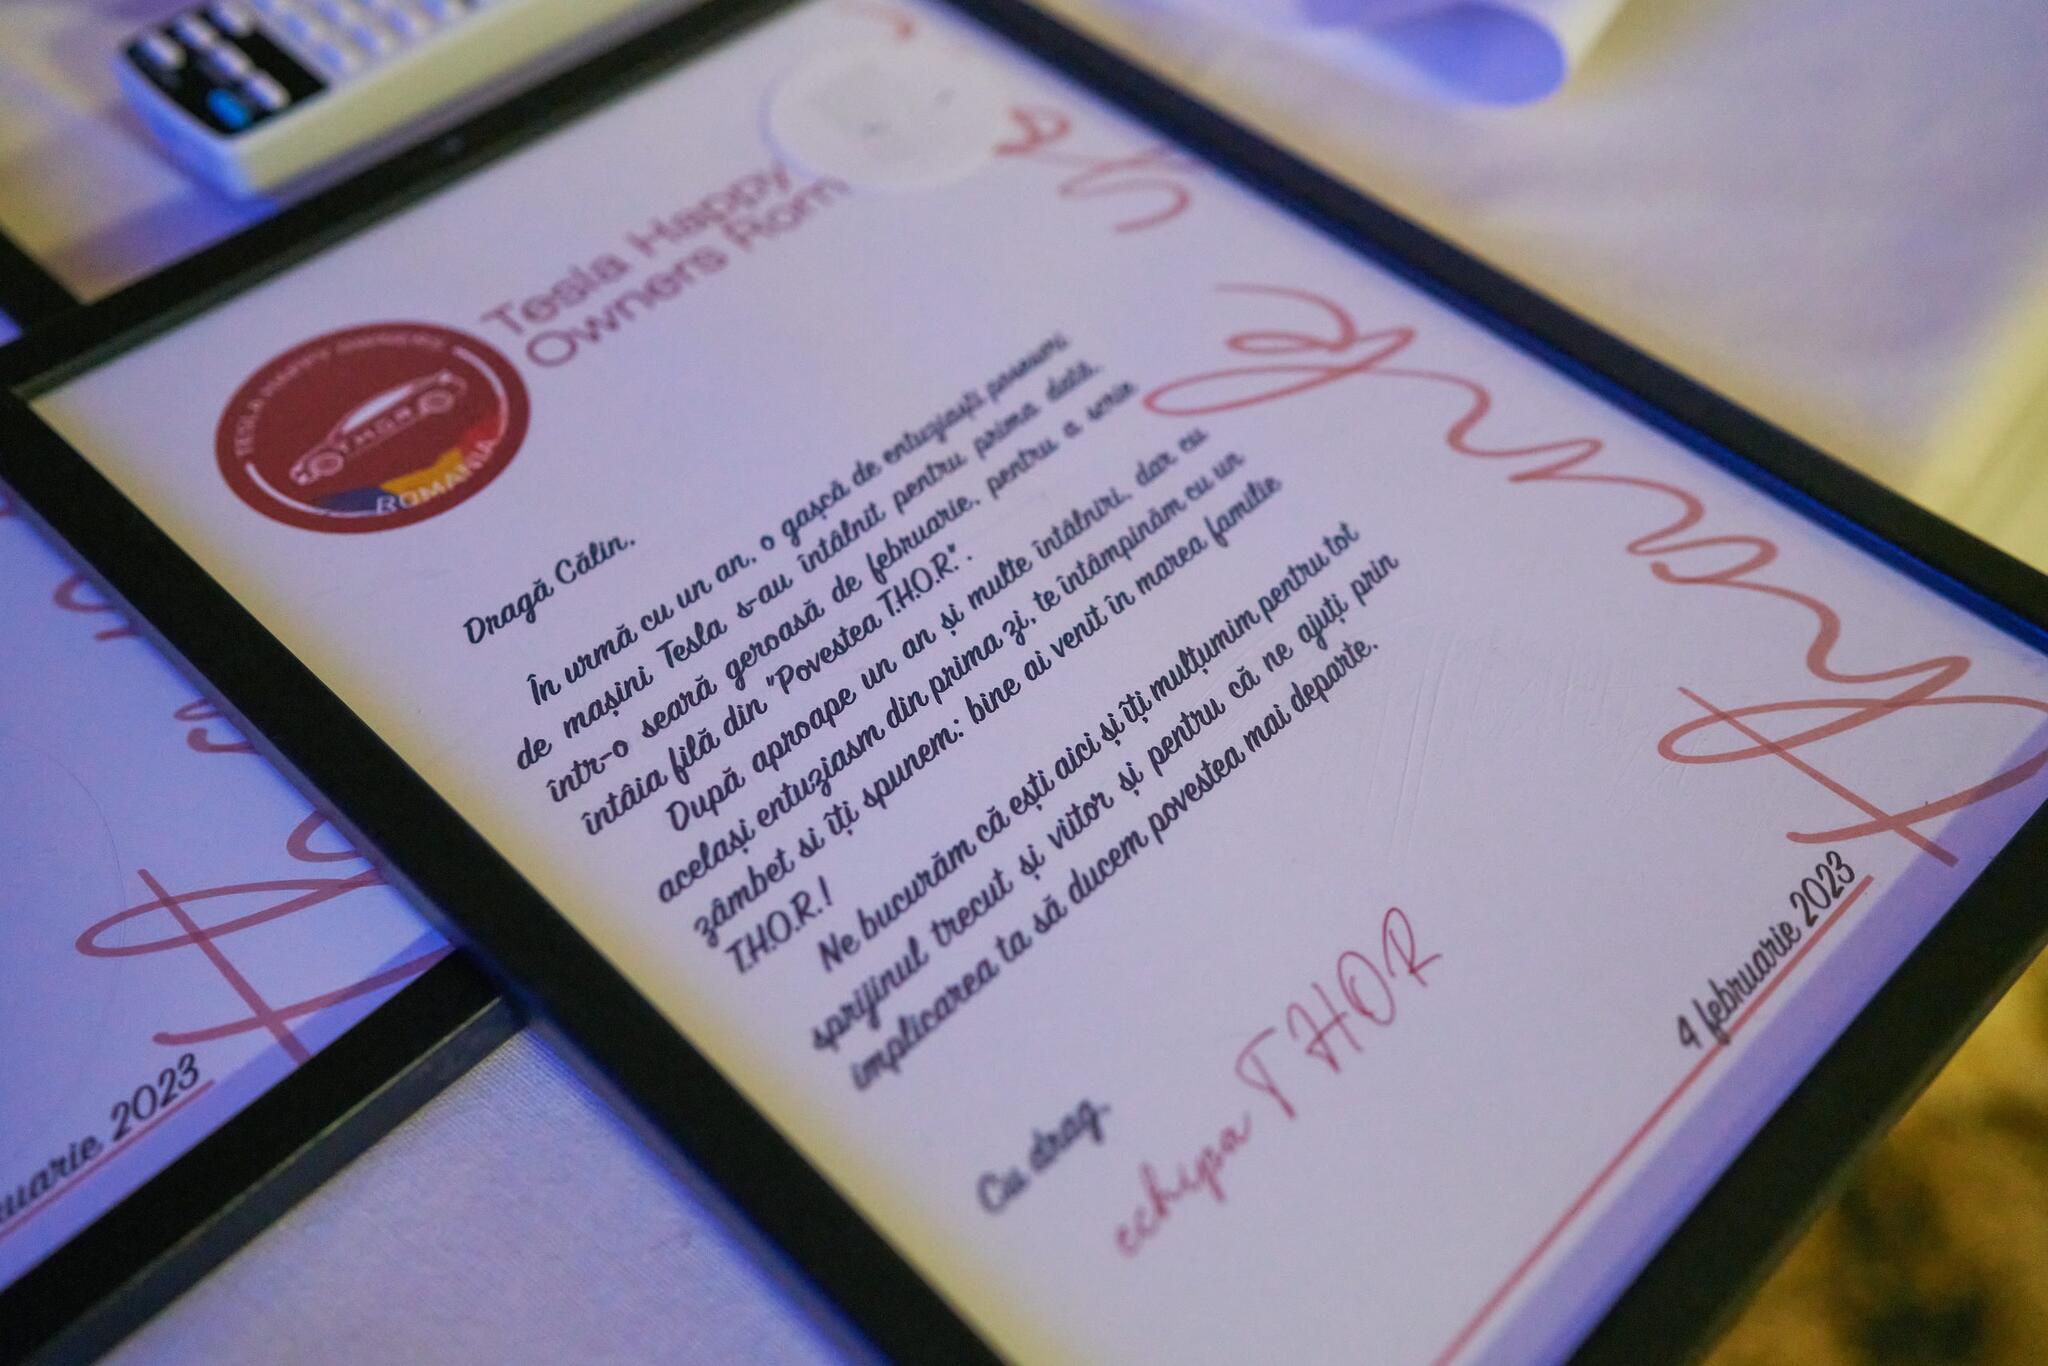 Tesla Happy
Owners Rom
TESLA HAPPY OWNERS
T.H.O.R.
ROMANIA
Dragă Călin,
În urmă cu un an, o gașcă de entuziaști posesori
de mașini Tesla s-au întâlnit pentru prima dată,
într-o seară geroasă de februarie, pentru a scrie
întâia filă din "Povestea T.H.O.R.".
După aproape un an și multe întâlniri, dar cu
același entuziasm din prima zi, te întâmpinăm cu un
zâmbet si îți spunem: bine ai venit în marea familie
T.H.O.R.!
Ne bucurăm că ești aici și îți mulțumim pentru tot
sprijinul trecut și viitor și pentru că ne ajuți prin
implicarea ta să ducem povestea mai departe.
Cu drag,
echipa THOR
4 februarie 2023
uarie 2023